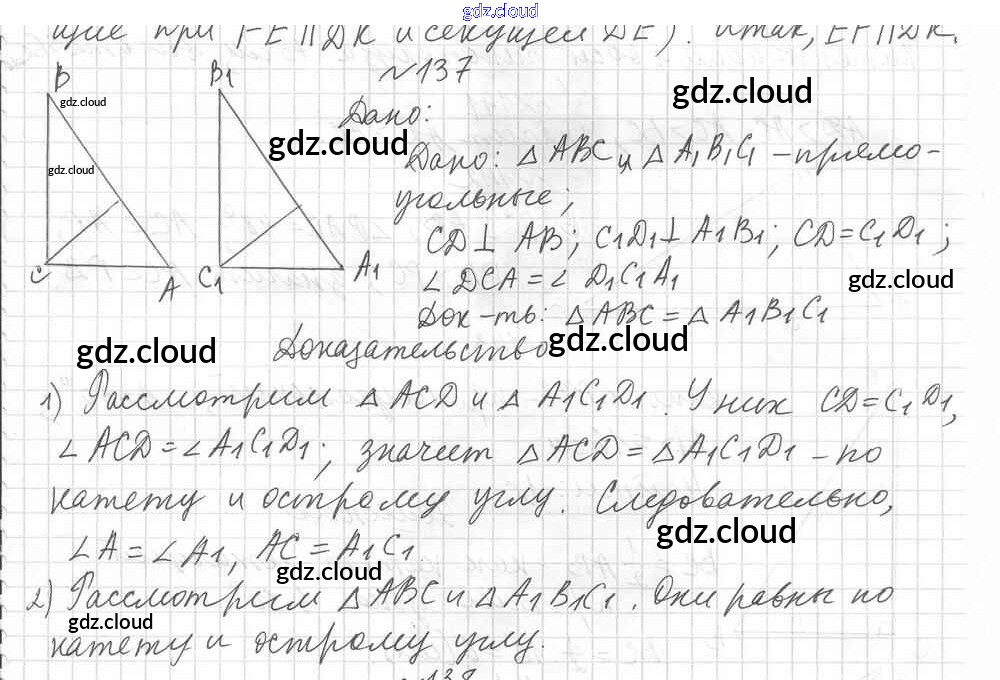 gdz.cloud
щие при FE∥DK и секущей DE). Итак, EF∥DK.
№137
B
B1
gdz.cloud
gdz.cloud
Дано:
gdz.cloud
Дано: △ ABC и △ A1B1C1 – прямо-
gdz.cloud
угольные;
CD⊥ AB; C1D1⊥ A1B1; CD=C1D1;
C
A
C1
A1
∠DCA=∠ D1C1A1
gdz.cloud
Док-ть: △ ABC = △ A1B1C1
gdz.cloud
Доказательство
gdz.cloud
1) Рассмотрим △ ACD и △ A1C1D1. У них CD=C1D1,
∠ACD=∠A1C1D1; значит △ACD=△A1C1D1 – по
катету и острому углу. Следовательно,
gdz.cloud
∠A=∠A1, AC=A1C1
gdz.cloud
2) Рассмотрим △ABC и △A1B1C1. Они равны по
gdz.cloud
катету и острому углу.
138